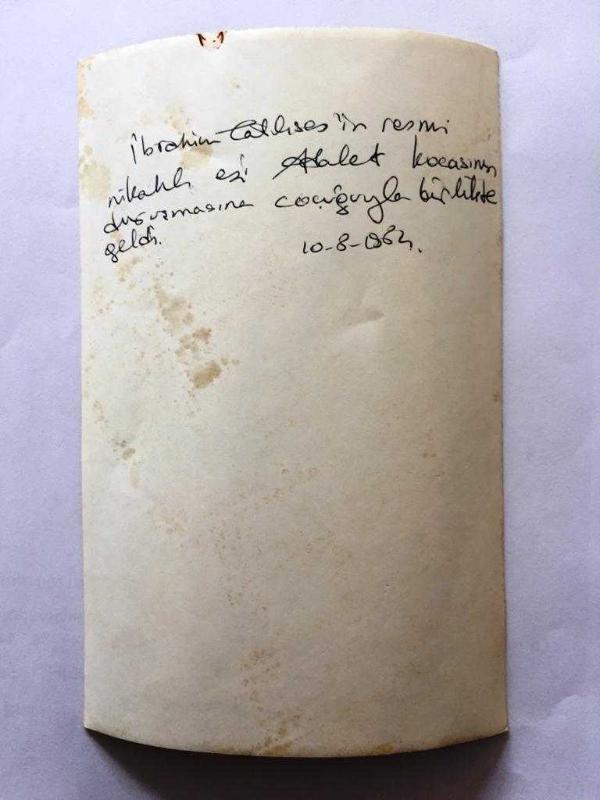 İbrahim Tatlıses'in resmi
nikahlı eşi Adalet kocasının
duruşmasına çocuğuyla birlikte
geldi. 10-8-1984.